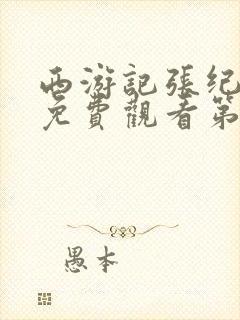 西游記張紀
免費觀看第
愚本